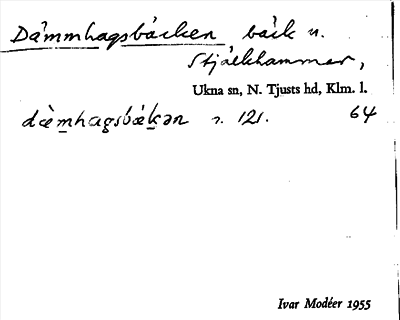 Dämmhagsbäcken bäck n.
Stjälkhammar,
Ukna sn, N. Tjusts hd, Klm. l.
dæ̀mhagsbækən s. 121. 64
Ivar Modéer 1955